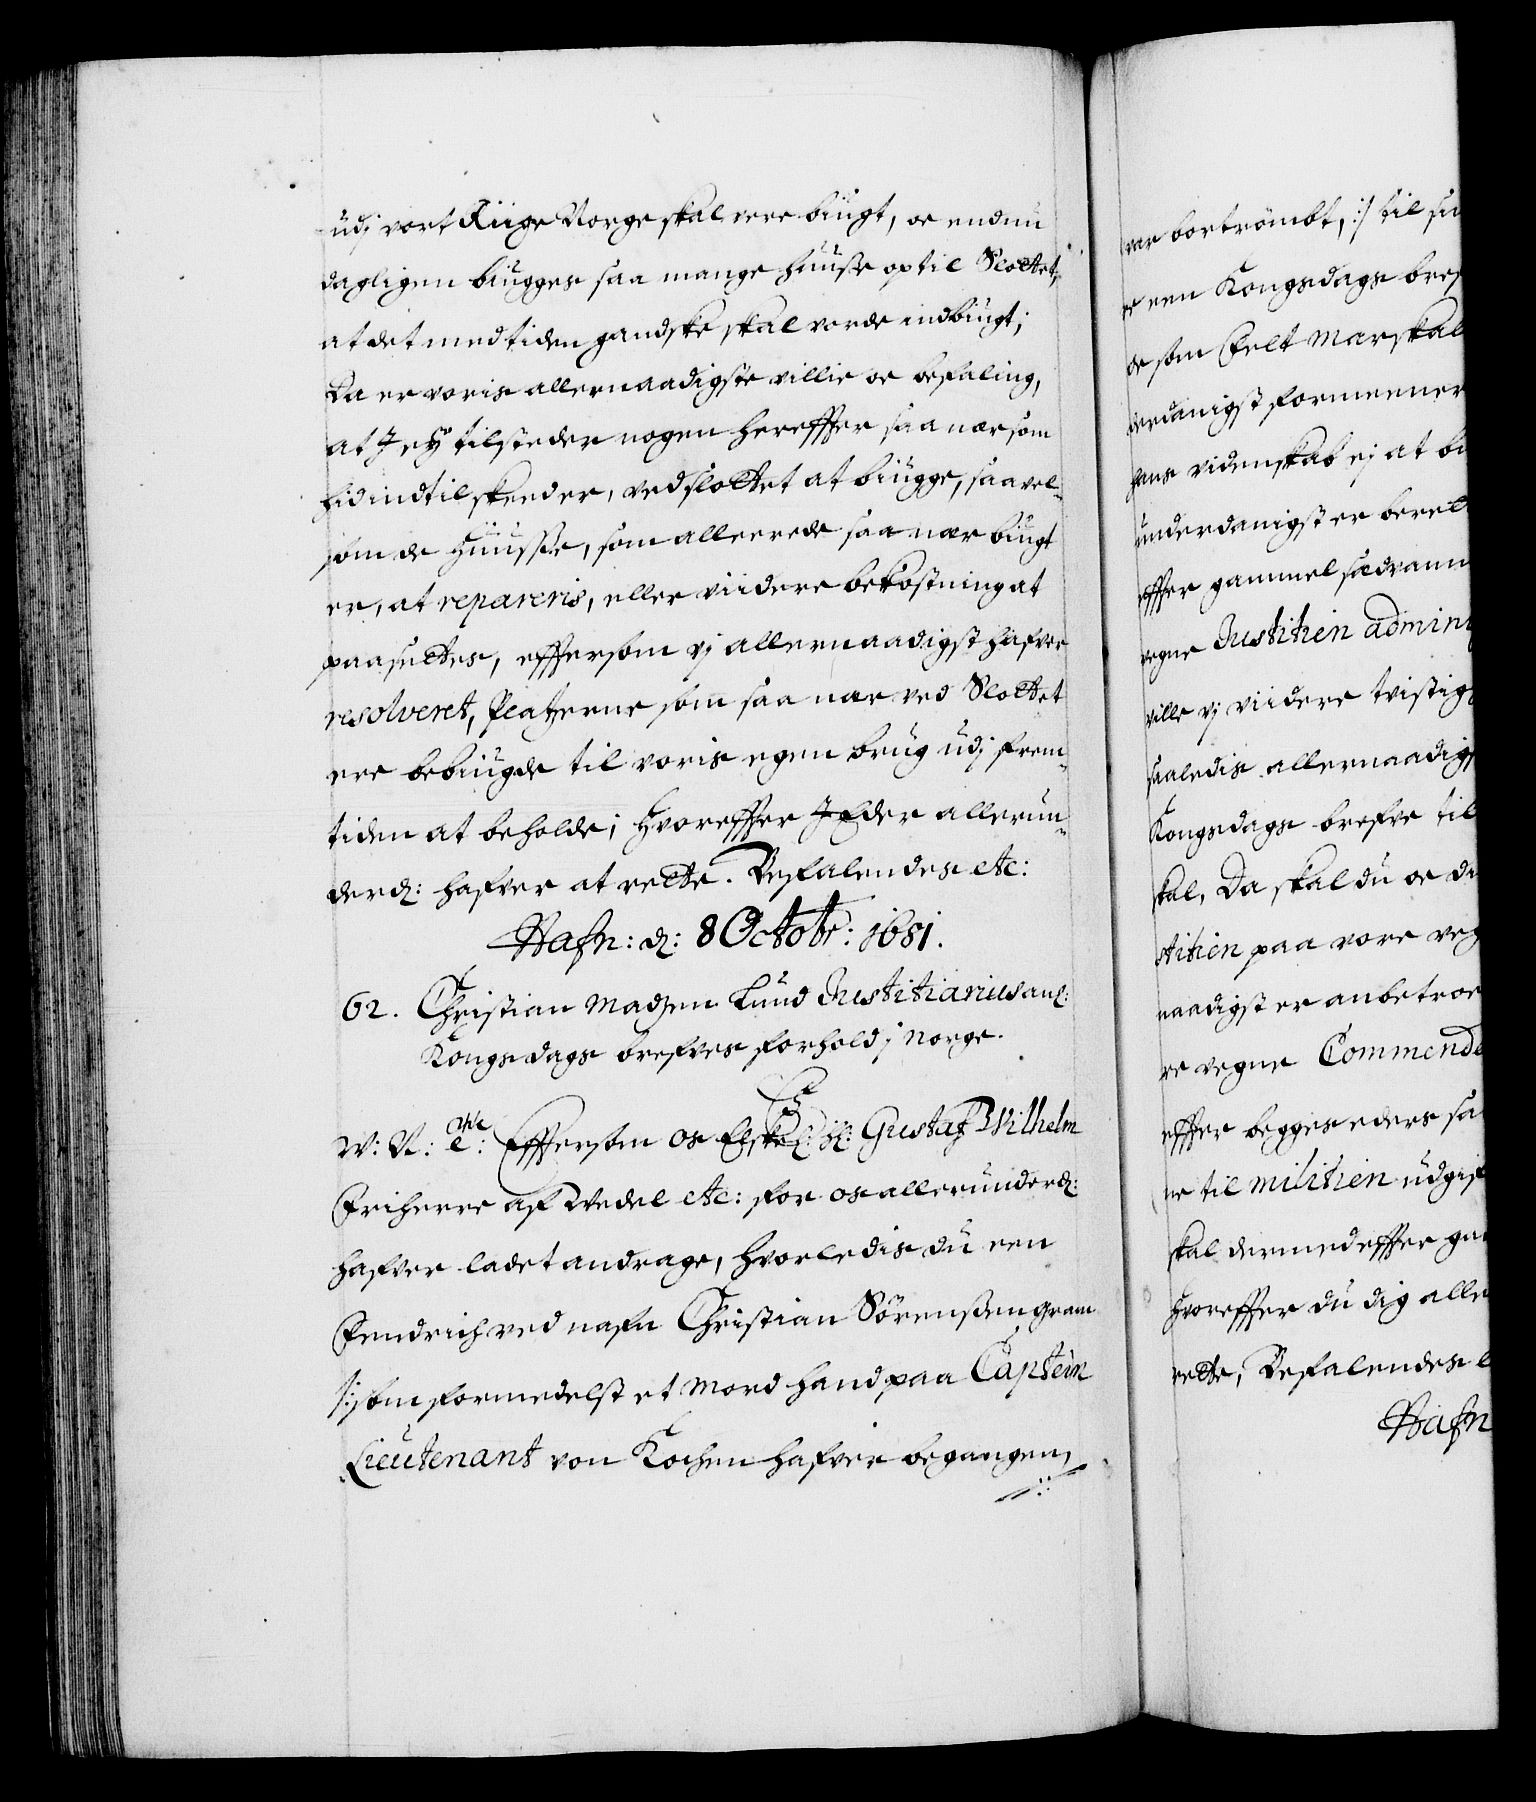 udj vort Riige Norge skal vere biugt, oc endnu
dagligen biugges saa mange huuse op til Slottet,
at det med tiden gandske skal vorde indbiugt;
Da er voris allernaadigste villie oc befaling,
at J ey tilsteder nogen hereffter saa nær som
hid indtil skeed er, ved slottet at biugge, saavel-
som de huusse, som allereede saa nær biugt
er, at repareris, eller viidere bekostning at
paasettes, efftersom vj allernaadigst hafver
resolveret, Platzerne som saa nær ved Slottet
ere bebiugde til voris egen brug udj frem-
tiden at beholde; Hvoreffter J Eder allerun-
derd: hafver at rette. Befalendes etc:
Hafn: d: 8 Octobr: 1681.
62. Christian Madzen Lund Justitiarius anl:
Kongsdags brefves forhold j Norge.
C5
W: N: Efftersom os Elskel: H: Gustaf Wilhelm
Friherre af Wedel etc: for os allerunderd:
hafver ladet andrage, hvorledis du een
Fendrich ved nafn Christian Sörenssen Gram
/: som formedelst et mord hand paa Captein
Lieutenant von Kochen hafver begangen,
var bortrömbt, :/ til
een Kongsdags bref
som Felt Marskal
formeener
hans videnskab ej at
underdanigst er beret
effter gammel sædvan
vegne Justitien admini
ville vj viidere tvistig
saaledis allernaadigst
Kongsdags brefve til
skal, Da skal du oc
stitien paa vore veg
naadigst er anbetroe
re vegne Commende
effter begges eders
ne til militien udgif
skal dermed effter
Hvoreffter du dig alle
rette, Befalendes
Hafn